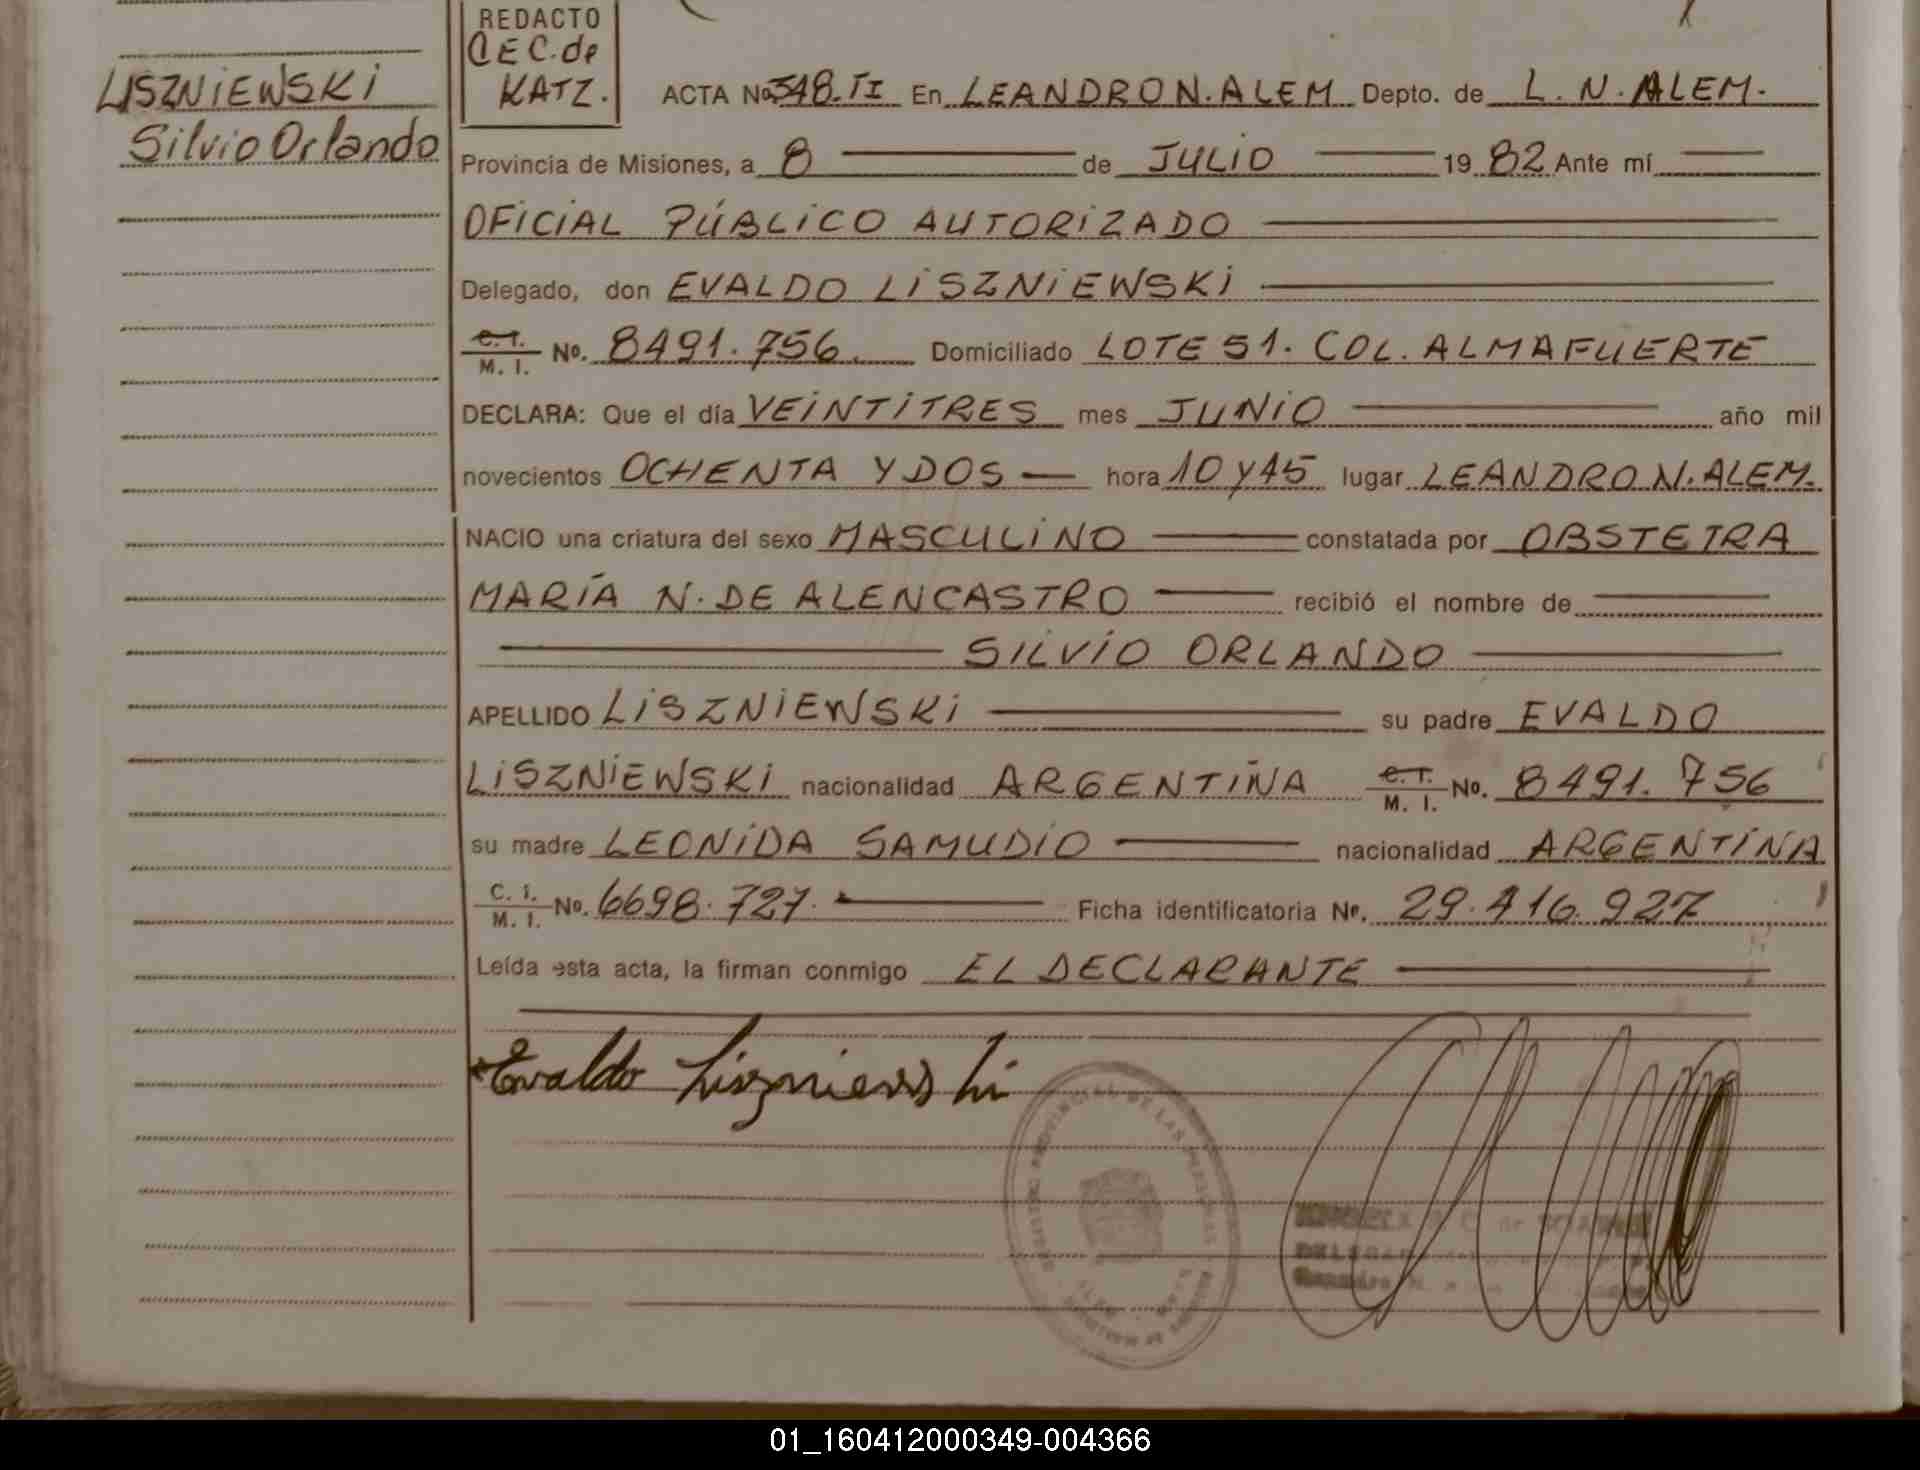 LISZNIEWSKI
Silvio Orlando
REDACTO
C E C. de
KATZ.
ACTA No. 548. II En LEANDRO N. ALEM Depto. de L. N. ALEM.
Provincia de Misiones, a 8 de JULIO 19 82 Ante mí
OFICIAL PÚBLICO AUTORIZADO
Delegado, don EVALDO LISZNIEWSKI
C. I. / M. I. No. 8491.756. Domiciliado LOTE 51. COL. ALMAFUERTE
DECLARA: Que el día VEINTITRES mes JUNIO año mil
novecientos OCHENTA Y DOS hora 10 y 45 lugar LEANDRO N. ALEM.
NACIO una criatura del sexo MASCULINO constatada por OBSTETRA
MARÍA N. DE ALENCASTRO recibió el nombre de
SILVIO ORLANDO
APELLIDO LISZNIEWSKI su padre EVALDO
LISZNIEWSKI nacionalidad ARGENTINA C. I. / M. I. No. 8491.756
su madre LEONIDA SAMUDIO nacionalidad ARGENTINA
C. I. / M. I. No. 6698.727. Ficha identificatoria No. 29.416.927
Leída esta acta, la firman conmigo EL DECLARANTE
Evaldo Liszniewski
01_160412000349-004366